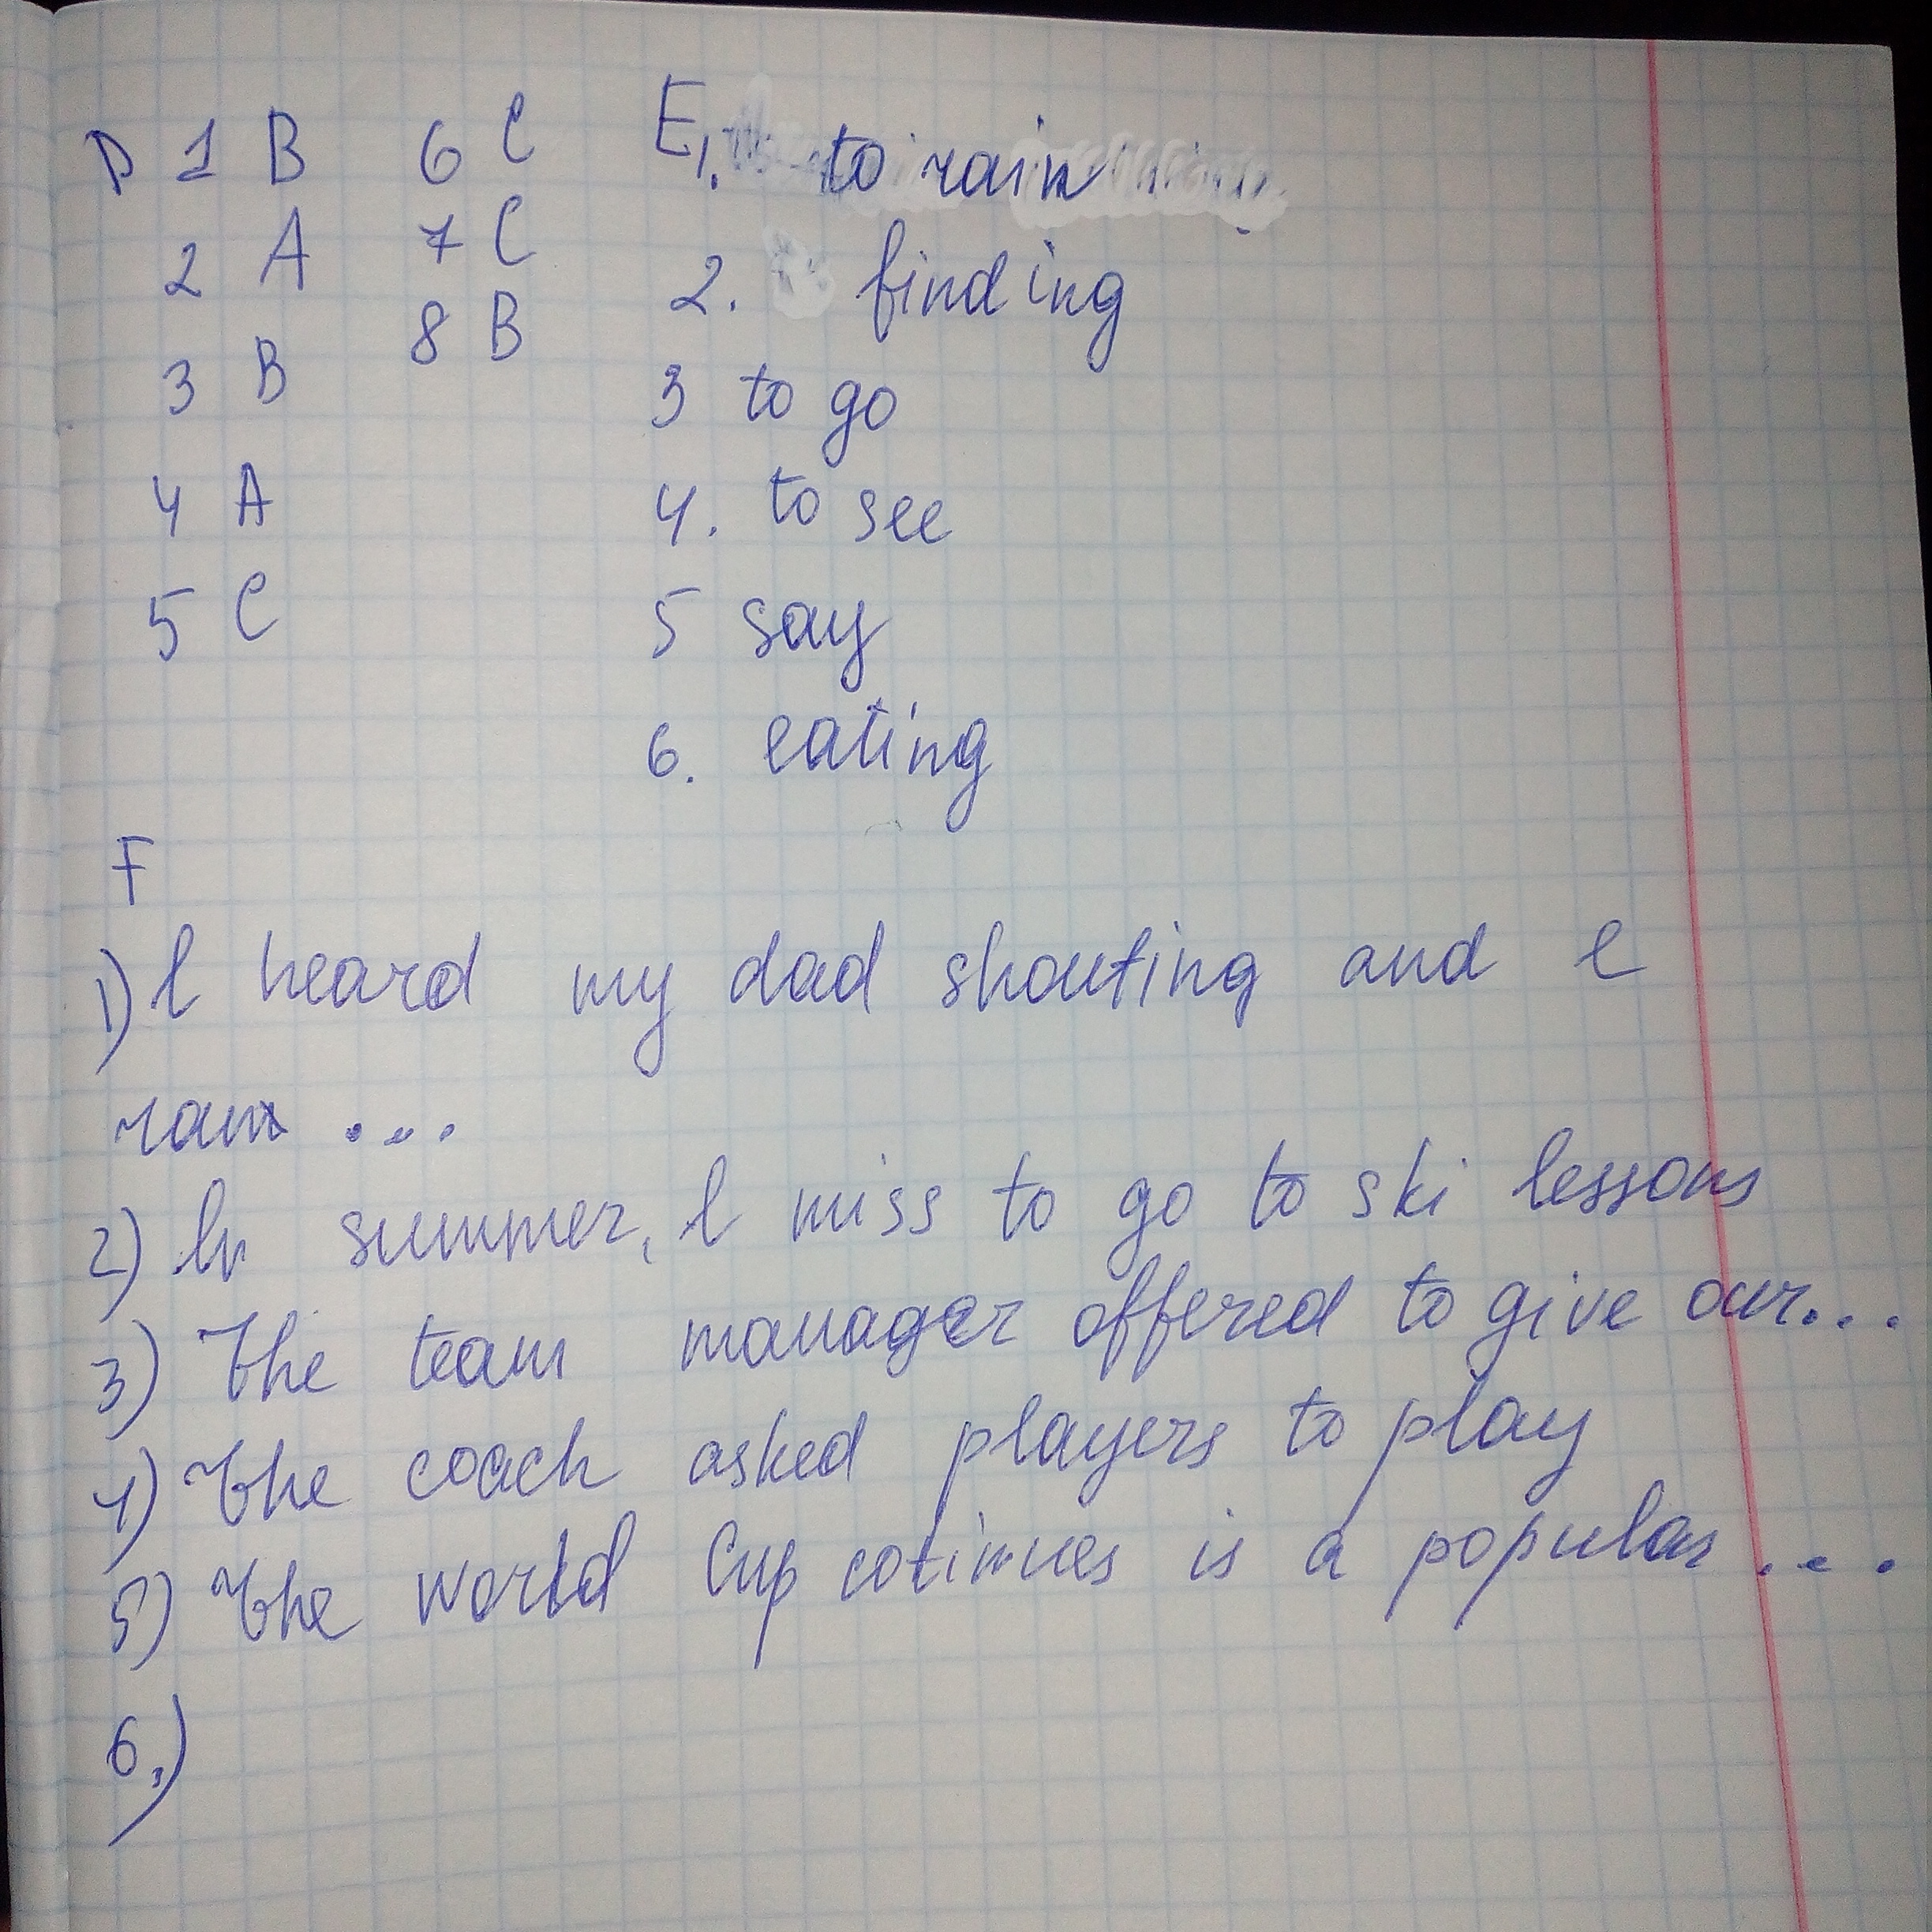 D 1 B 6 C E1. to rain
2 A 7 C 2. finding
3 B 8 B 3 to go
4 A 4. to see
5 C 5 say
6. eating
F
1) I heard my dad shouting and I
ran ...
2) In summer, I miss to go to ski lessons
3) The team manager offered to give our...
4) The coach asked players to play
5) The world Cup cotinues is a popular ...
6.)